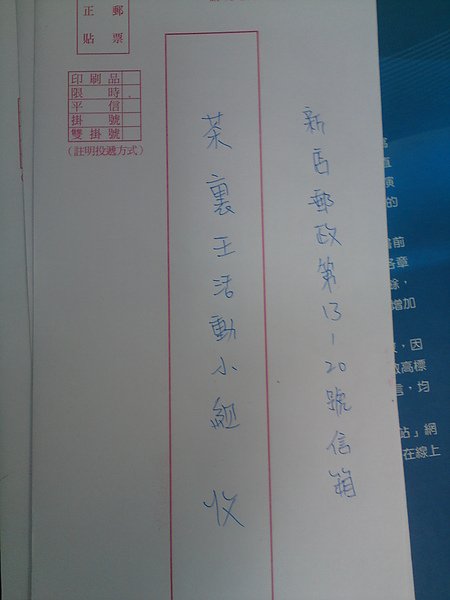 新店郵政第13-20號信箱
茶裏王活動小組 收
正 郵
貼 票
印刷品
限時
平信
掛號
雙掛號
(註明投遞方式)
增加
，因
高標
，均
站」網
在線上